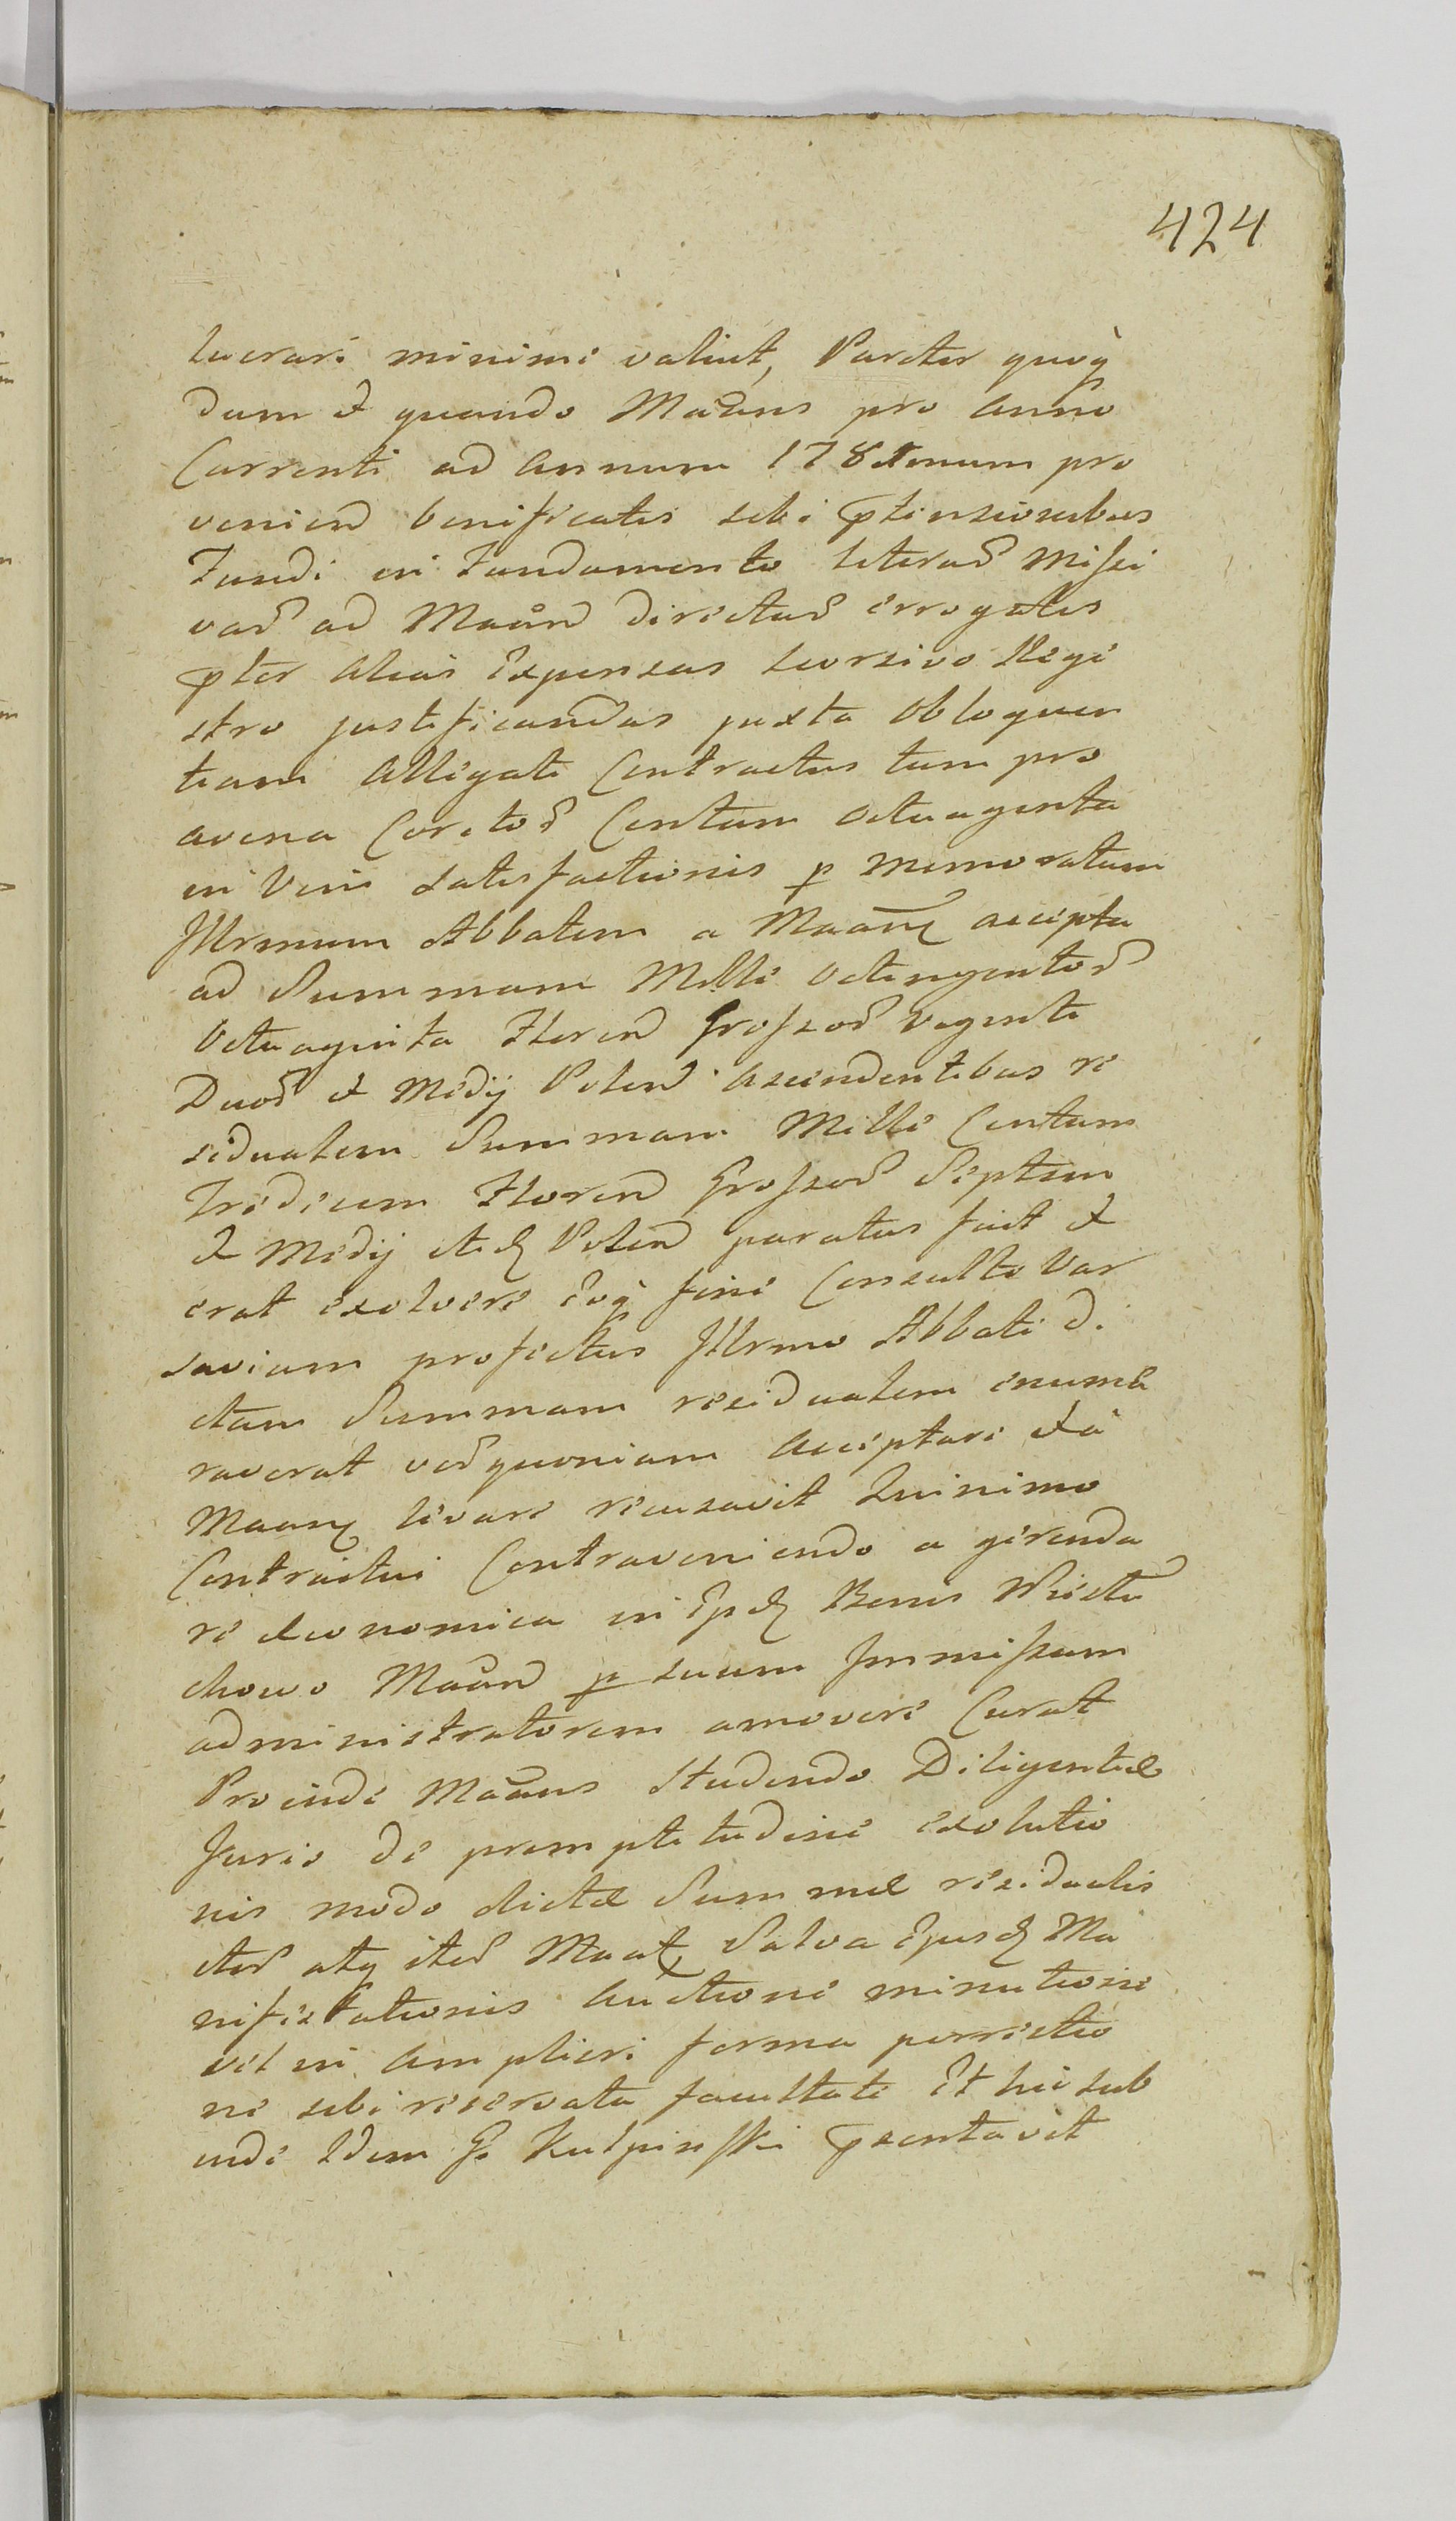 424
lucrari minime valuit, Pariter quoq̀
dum et quando Maãns pro anno
Currenti ad annum 178 timum pro
venien̄ bonificatis sibi p̄tensionibus
Fundi in Fundamento literar̄ Missi
var̄ ad Maãn̄ directar̄ errogatis
p̄ter alias Expensas seorsivo Regi
stro justificandas juxta obloquen
tiam Alligati Contractus tum pro
avena Coretor̄ Centum octuaginta
in vim satisfactionis p̱ memoratum
Jllrmum Abbatem a Maanꝫ accepta
ad Summam Mille octingentor̄
octuaginta Floren̄ Grossor̄ viginti
Duor̄ et Medij Polon̄ ascendentibus re
sidualem Summam Mille Centum
Tredecim Floren̄ Grossor̄ Septem
et Medij itidꝫ Polon̄ paratus fuit et
erat exolvere Eoq̀ fine Consulto Var
saviam profectus Jllrmo Abbati di
ctam Summam residualem enume
raverat verquoniam acceptare et à
Maanꝫ levare recusavit Quinimo
Contractui Contraveniendo a gerenda
re œconomica in Ijsdꝫ Bonis Wiecbu
chowo Maãn̄ p̱ suum Immissum
administratorem amovere Curat
Proinde Maãns studendo Diligentiæ
Juris de promptitudine exolutio
nis modo dictæ Summæ residualis
iter̄ atq̀ iter̄ Maat, Salva Ejusdꝫ Ma
nifestationis auctione minutione
vel in ampliori forma porrectio
ne sibi reservata facultate Et hic sub
inde Idem G. Kulpinski p̄sentavit